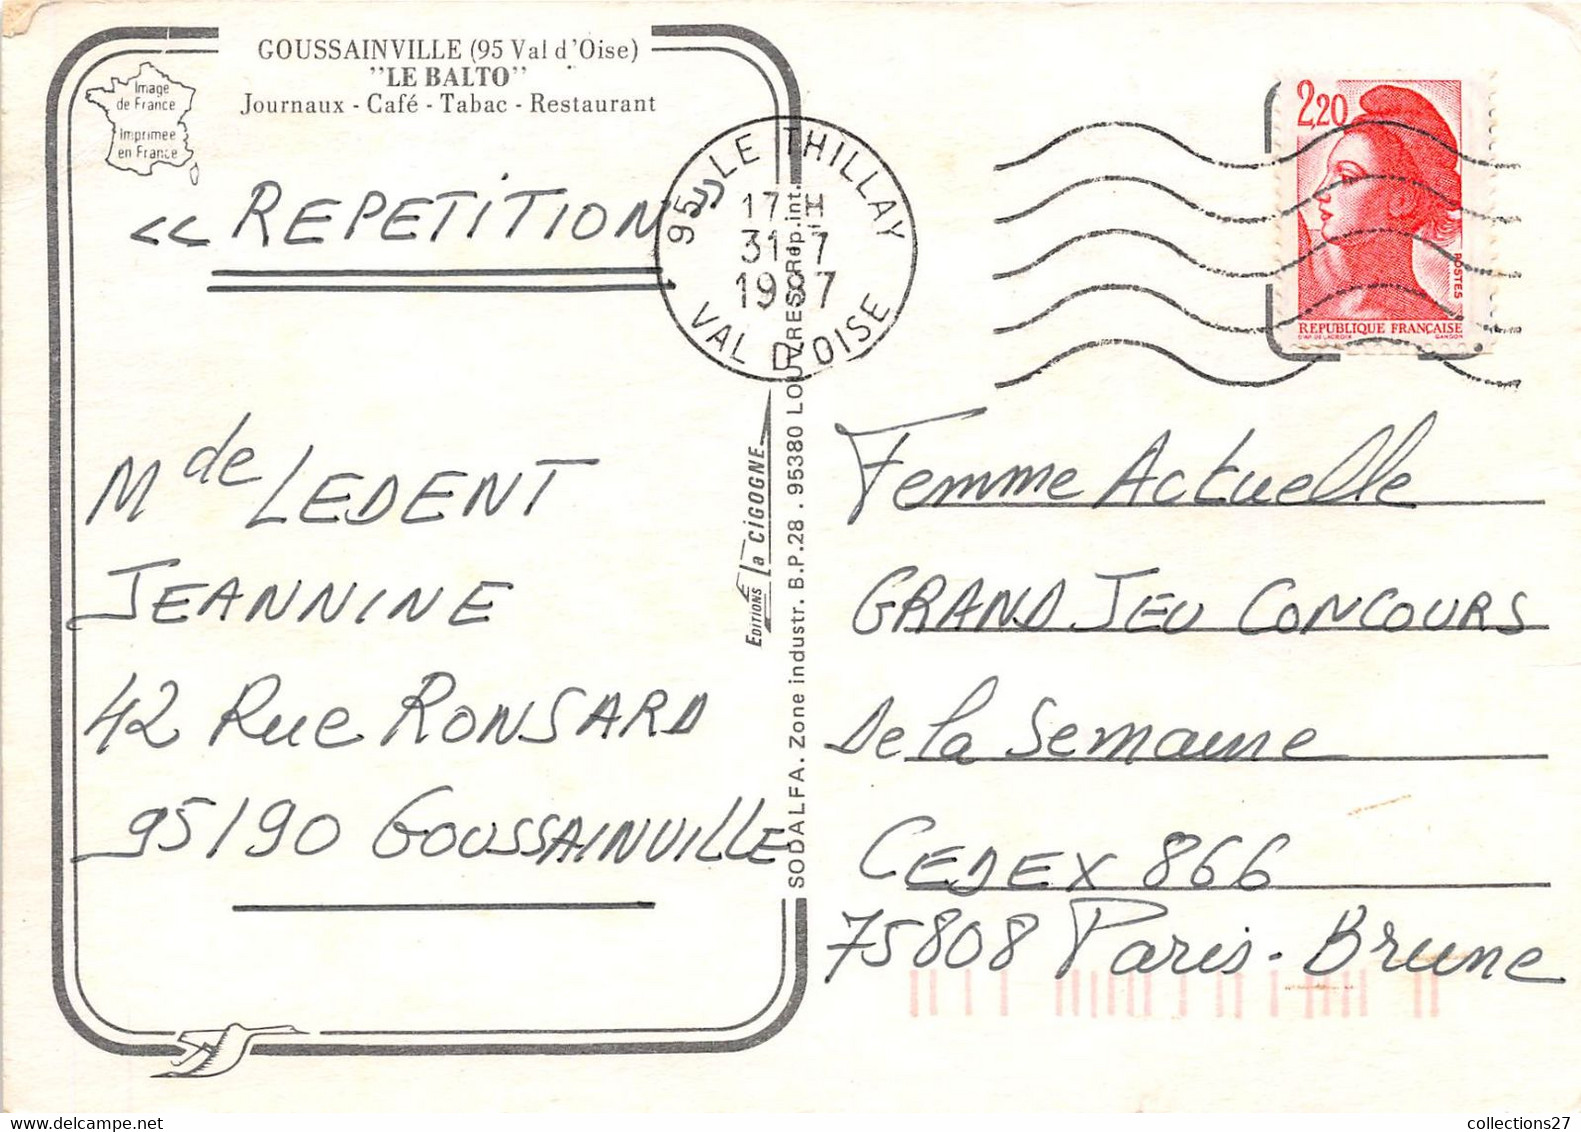 GOUSSAINVILLE (95 Val d'Oise)
"LE BALTO"
Journaux - Café - Tabac - Restaurant
Image
de France
Imprimée
en France
<< REPETITION >>
95 LE THILLAY
17 H
31-7
1987
VAL D'OISE
2,20
POSTES
REPUBLIQUE FRANÇAISE
D'AP. DE LACROIX
GANDON
Mde LEDENT
JEANNINE
42 Rue RONSARD
95190 GOUSSAINVILLE
EDITIONS la CIGOGNE
SODALFA. Zone industr. B.P.28 . 95380 LOUVRES Rep.int.
Femme Actuelle
GRAND JEU CONCOURS
De la Semaine
CEDEX 866
75808 Paris-Brune
collections27